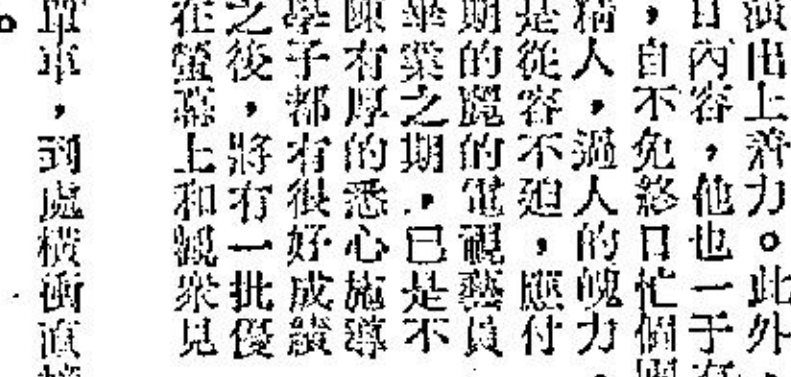 演出上着力。此外,
日內容,他也一手
,自不免終日忙個
精人,過人的魄力,
是從容不迫,應付
期的麗的電視藝員
畢業之期,已是不
陳有厚的悉心施導
學子都有很好成績
之後,將有一批優
在螢幕上和觀眾見
單車,到處橫衝直